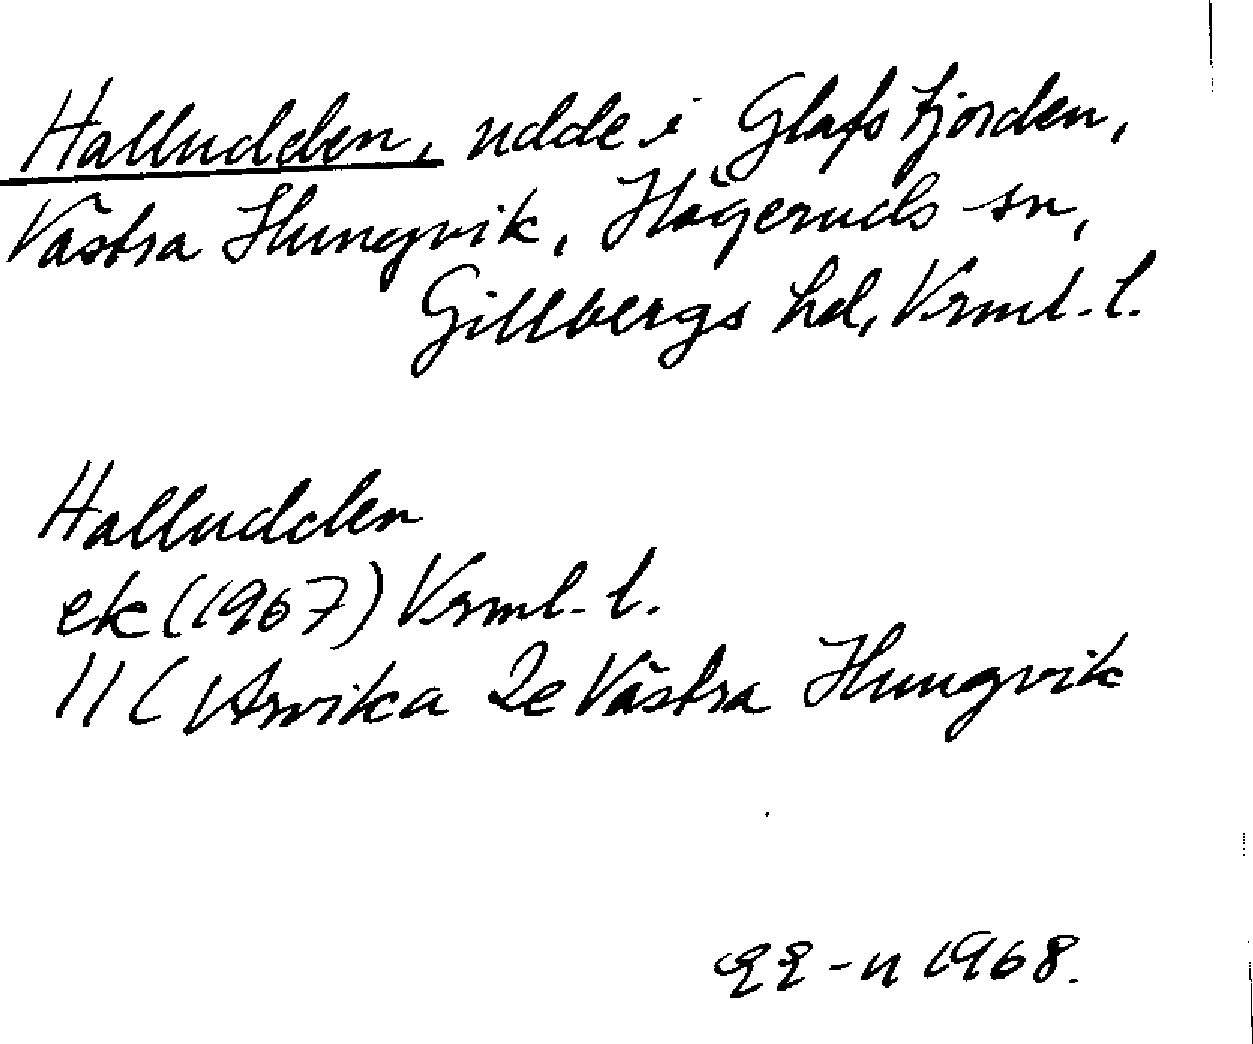 Halludden, udde i Glafsfjorden,
Västra Hungvik, Högeruds sn,
Gillbergs hd, Vrml. l.
Halludden
ek (1967) Vrml. l.
11C Arvika 2e Västra Hungvik
1968.